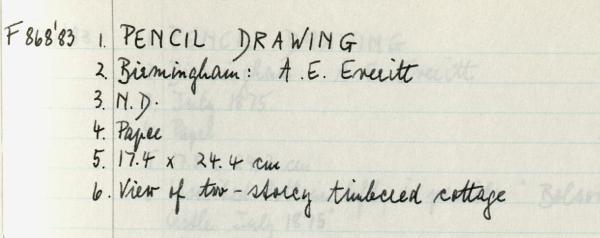 F 868'83 1. PENCIL DRAWING
2. Birmingham: A.E. Everitt
3. N.D.
4. Paper
5. 17.4 x 24.4 cm
6. View of two-storey timbered cottage